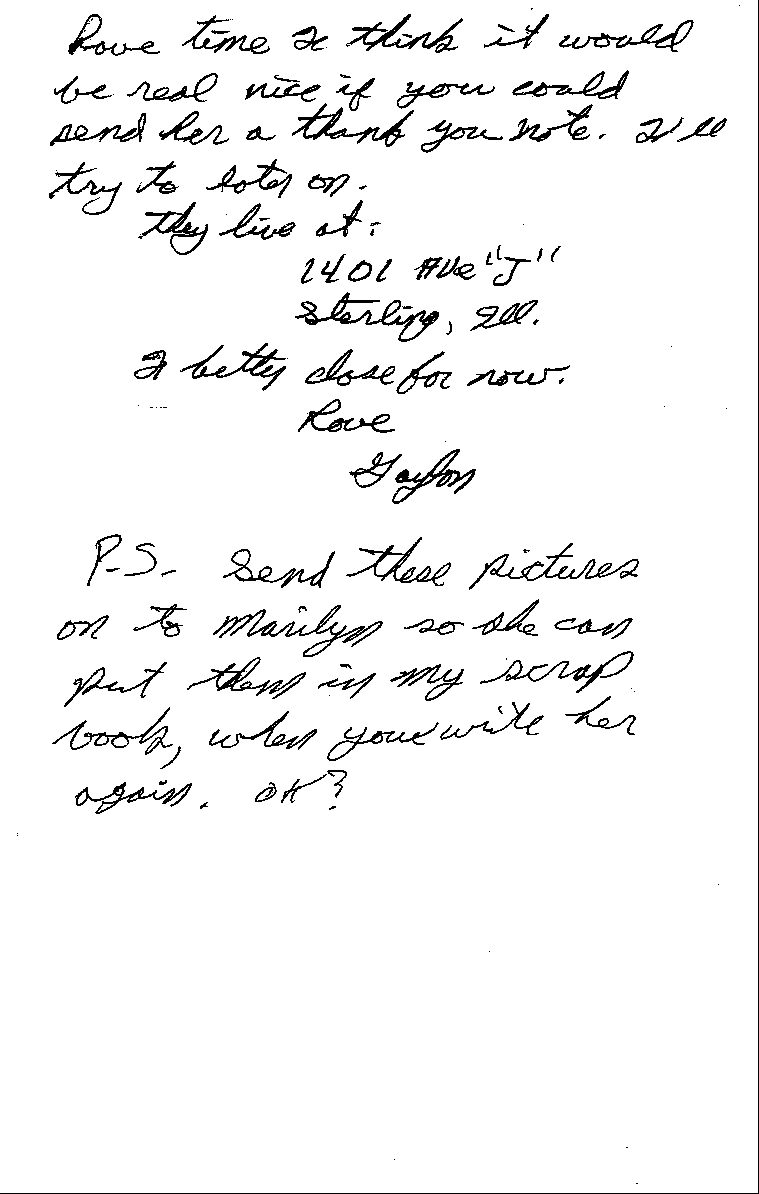 have time I think it would
be real nice if you could
send her a thank you note. I'll
try to later on.
They live at:
1401 Ave "J"
Sterling, Ill.
I better close for now.
Love
Gaylon
P.S. Send these pictures
on to Marilyn so she can
put them in my scrap
book, when you write her
again. OK?